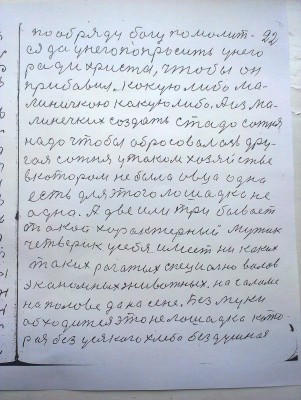 по обряду богу помолит- 22
ся да унего попросить унего
ради христа, чтобы он
прибавил, какую либо ма-
линичкою какую либо. А из ма-
линеких создать стадо сотня
надо чтобы образовалась дру-
гая сотня утаком хозяйстве
вкотором небыла овца одна
есть для этого лошадка не
одна. А две или три бывает
такой характерный мужик
четверик усебя имеет ни каких
таких рагатых специально валов
экономных животных. на саломе
на полове да на сене. Без муки
обходится это не лошадка кото-
рая без усякого хлеба бездушная